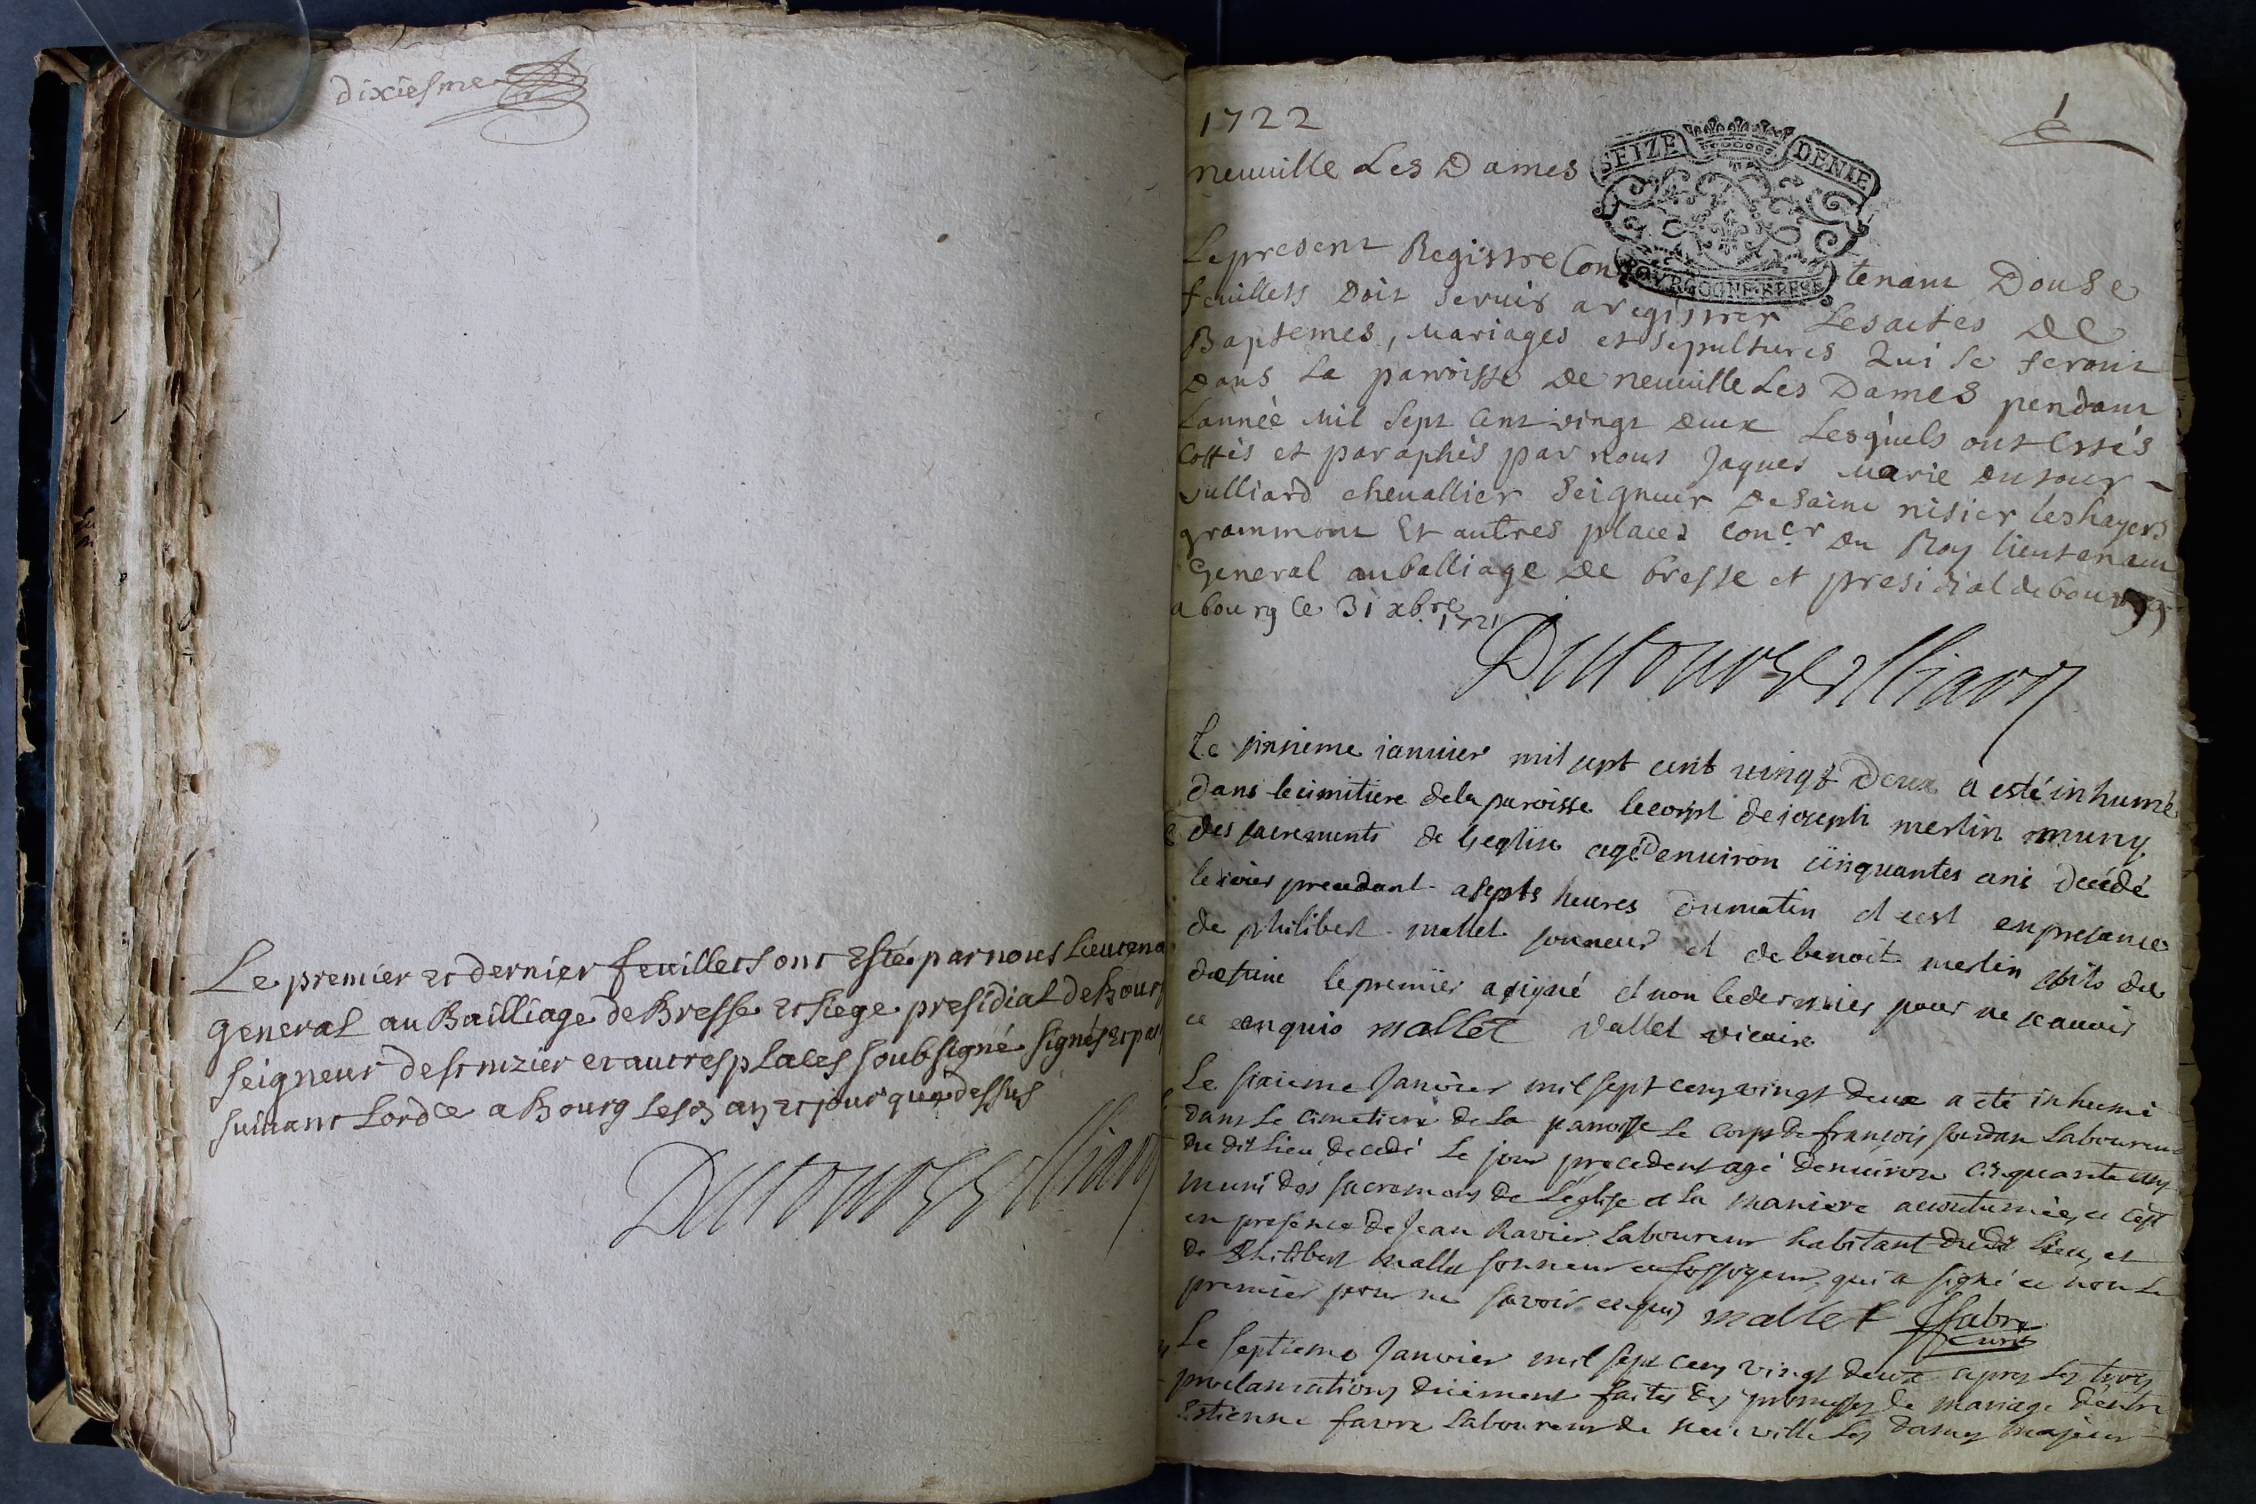 dixiesme
Le premier et dernier feuillets ont Esté par nous Lieutena
General au Bailliage de Bresse et siege presidial de Bourg
seigneur de st nizier et autres places soubsigné signés et par
suivant Lordce a Bourg les an et jour que dessus
Dutour Vulliard
1722
1
neuville Les Dames
SEIZE DENIE
BOURGOGNE BRESSE
Le present Registre Contenant Douse
feuillets Doit servir a registrer Les actes De
Baptemes, Mariages et sepultures Qui se feront
Dans La parroisse De neuville Les Dames pendant
L'année Mil Sept Cent vingt Deux Lesquels ont Estés
Cottés et paraphés par nous Jaques Marie Dutour
vulliard chevallier Seigneur De Saint nisier les hayes
grammont Et autres places concer Du Roy lieutenant
General au balliage De bresse et presidial de bourg
a bourg Ce 31 xbre 1721
Dutour Vulliard
Le sixsieme ianvier mil sept cent vingt Deux a esté inhumé
dans le cimitiere de la paroisse le corps de ioseph merlin muny
des sacrements de l'eglise agé denviron cinquantes ans décédé
le iour precedant a septs heures du matin et cest en presance
de philibert mallet sonneur et de benoit merlin fils du
defunt le premier a signé et non le dernier pour ne scavoir
ce enquis mallet Vallet vicaire
Le sixieme Janvier mil sept cens vingt deux a eté inhumé
dans Le cimetiere de La parroisse Le corps de françois Laboureur
du dit Lieu decedé Le jour precedent agé denviron cinquante ans
muni des sacremens de L'eglise a la maniere accoutumée, ce cest
en presence de Jean Ravier Laboureur habitant dudit Lieu, et
de Philibert Mallet sonneur et fossoyeur qui a signé et non Le
premier pour ne savoir enquis mallet Jfabre
curé
Le septieme Janvier mil sept cens vingt deux apres Les trois
proclamations duement faites des promesses de mariage d'entre
Estienne favre Laboureur de Neuville Les dames majeur